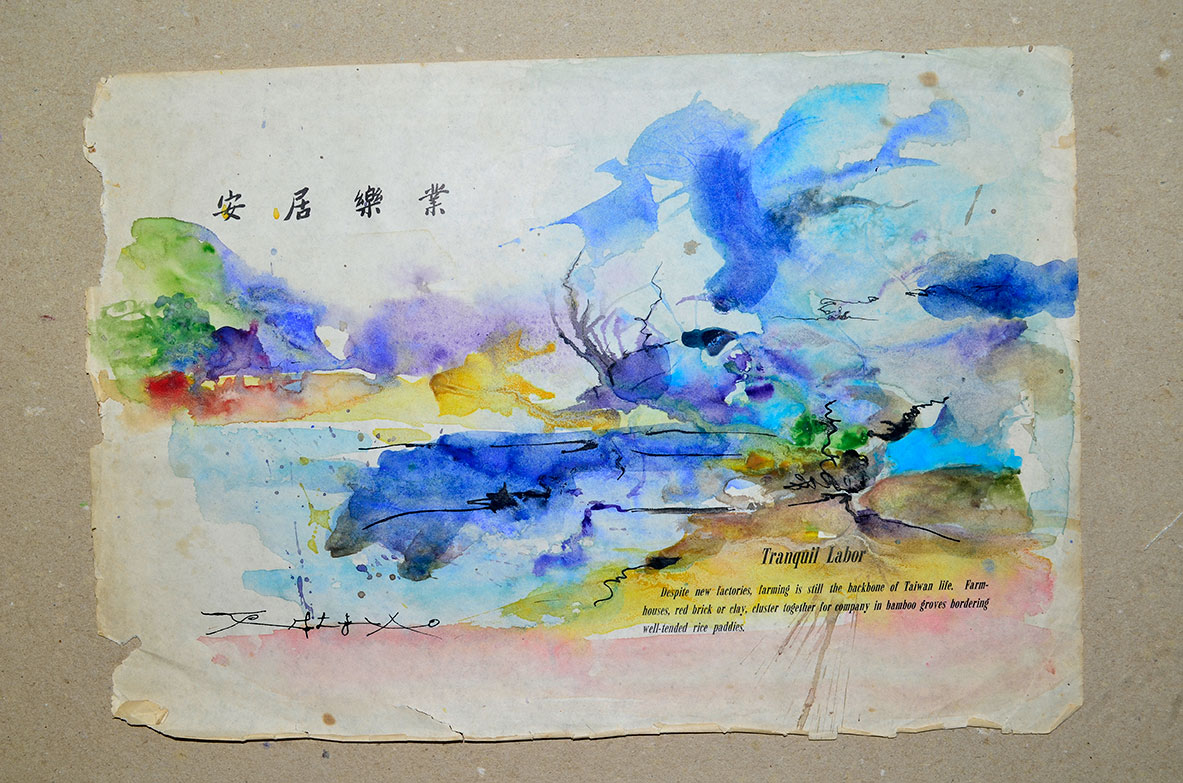 安居樂業
Tranquil Labor
Despite new factories, farming is still the backbone of Taiwan life. Farm-
houses, red brick or clay, cluster together for company in bamboo groves bordering
well-tended rice paddies.